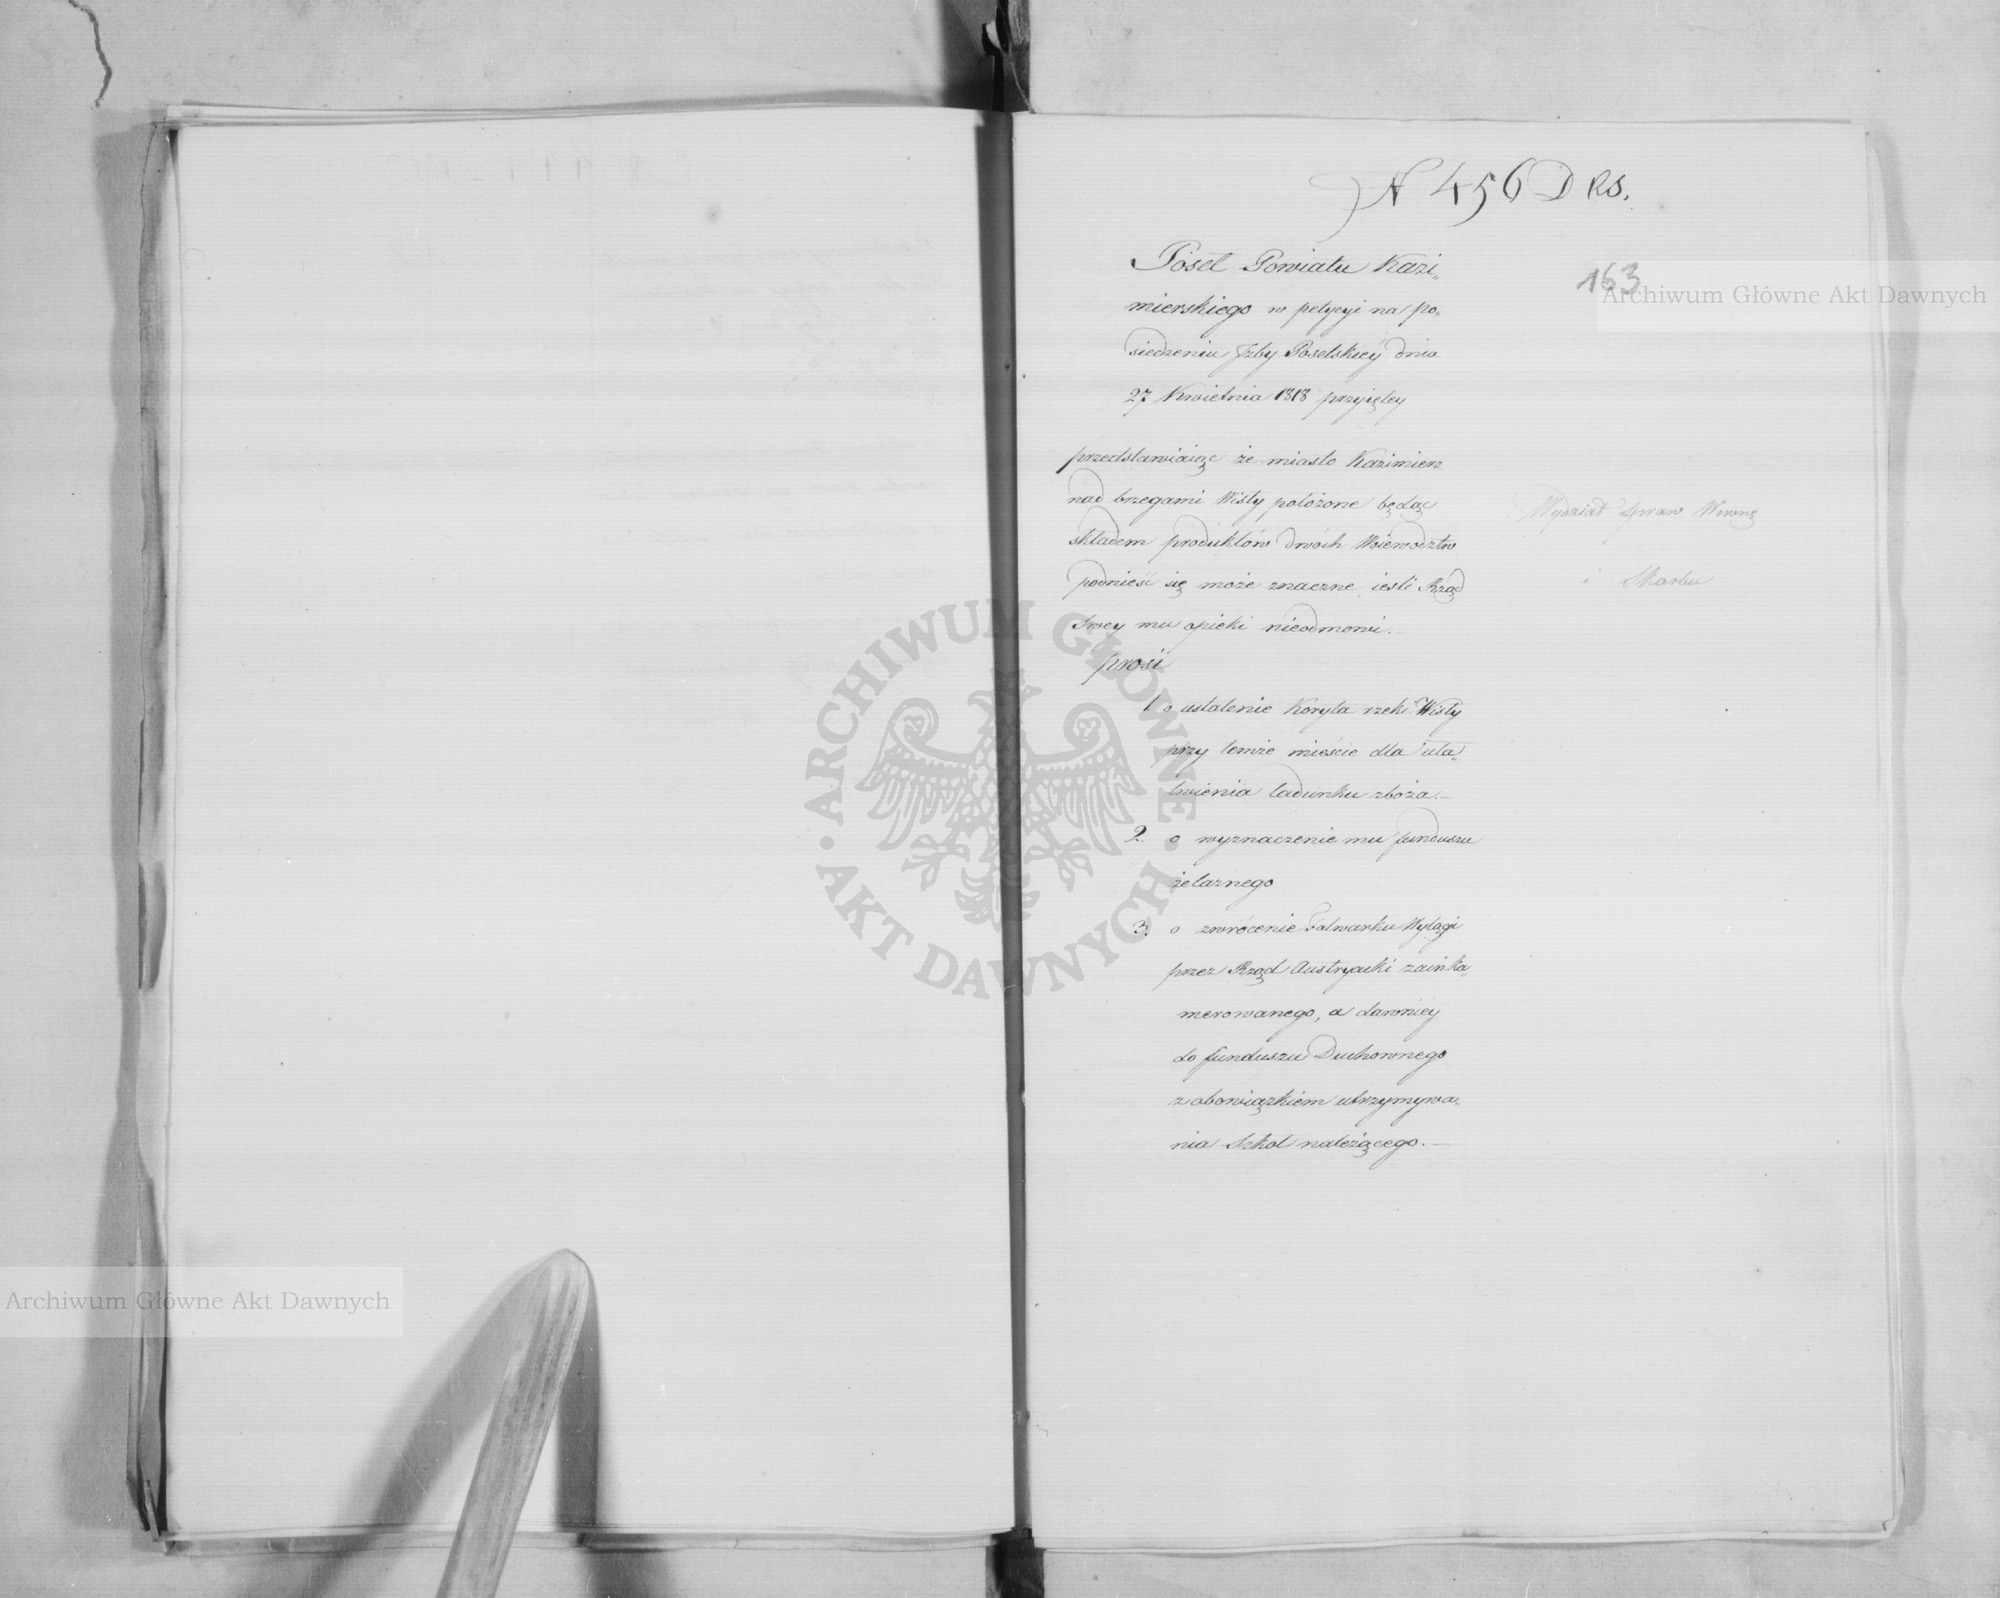 N 456 D R S.
163
Archiwum Główne Akt Dawnych
Poseł Powiatu Kazi„
mierskiego w petycyi na po„
siedzeniu Jzby Poselskiey dnia
27 Kwietnia 1818 przyiętey
przedstawiaiąc że miasto Kazimierz
nad brzegami Wisły położone będąc
składem produktów dwóch Woiewodztw
podnieść się może znacznie iesli Rząd
Swey mu opieki nieodmowi.—
prosi
1. o ustalenie Koryta rzeki Wisły
przy temże mieście dla uła„
twienia ładunku zboża.—
2. o wyznaczenie mu funduszu
żelaznego
3. o zwrócenie Folwarku Wylągi
przez Rząd Austryacki zainka„
merowanego, a dawniey
do funduszu Duchownego
z obowiązkiem utrzymywa„
nia Szkoł należącego.—
Wydział Spraw Wewnę
i Skarbu
ARCHIWUM GŁÓWNE
AKT DAWNYCH
Archiwum Główne Akt Dawnych